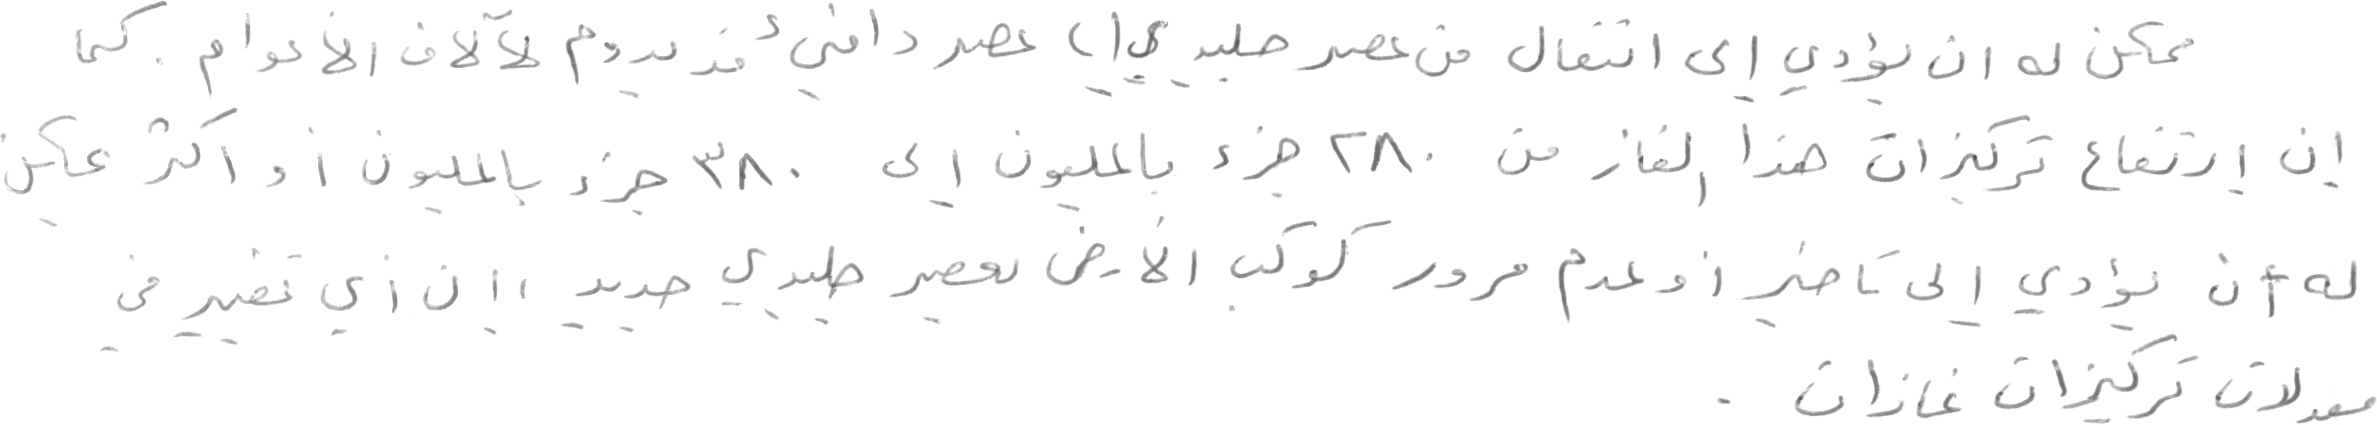 ممكن له ان يؤدي إلى انتقال من عصر جليدي إلى عصر دافيء قد يدوم لآلاف الأعوام . كما
إن إرتفاع تركيزات هذا الغاز من ٢٨٠ جزء بالمليون إلى ٣٨٠ جزء بالمليون أو اكثر يمكن
له أن يؤدي إلى تاخير أو عدم مرور كوكب الأرض بعصر جليدي جديد ، إن أي تغيير في
معدلات تركيزات غازات .